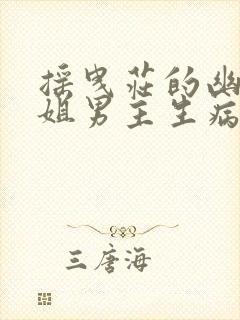 採曳莊的幽
姐男主生病
三唐海